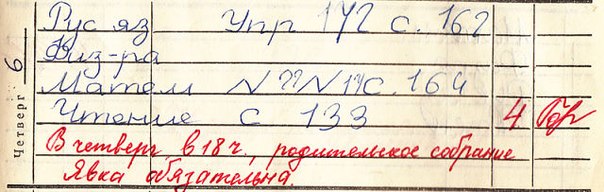 Четверг 6
Рус яз Упр 172 с. 162
Физ-ра
Матем № с. 164
Чтение с 133 4
В четверг в 18 ч. родительское собрание
Явка обязательна.